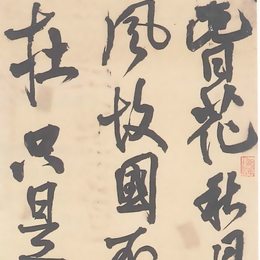 春花秋月
風故國不
在只是